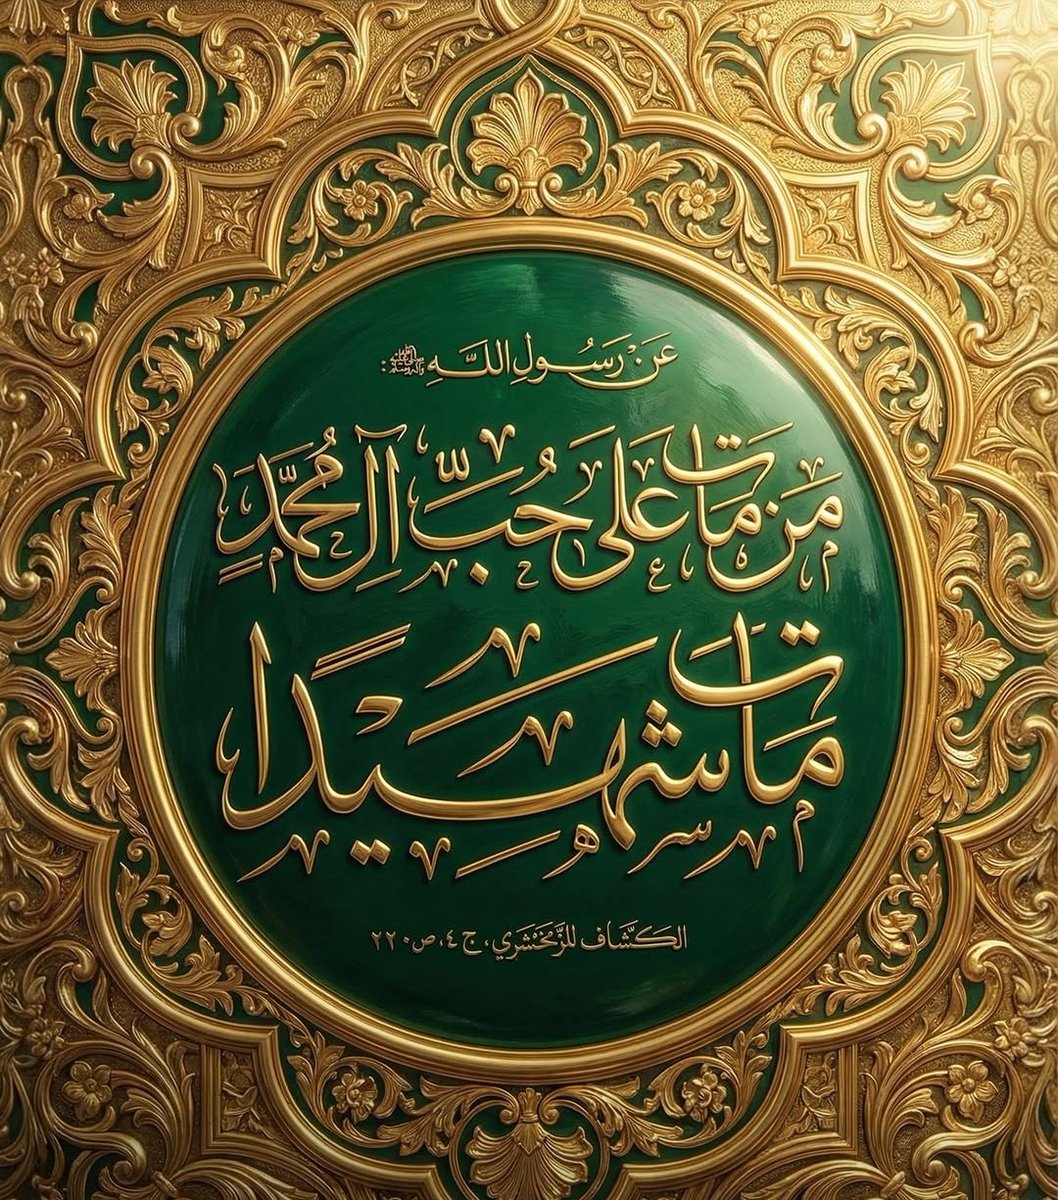 عَنْ رَسُولِ اللَّهِ ﷺ:
مَنْ مَاتَ عَلَى حُبِّ آلِ مُحَمَّدٍ
مَاتَ شَهِيدًا
الكَشَّاف للزَّمَخْشَرِي، ج ٤، ص ٢٢٠